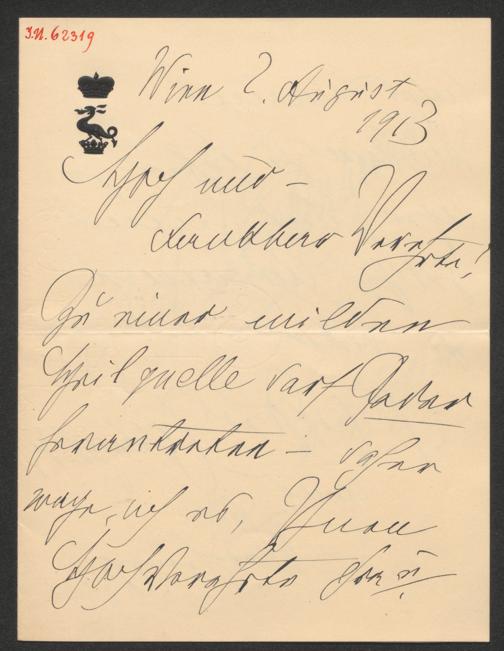 I.N. 62319
Wien 2. August
1913
Hoch und –
dankbar Verehrte!
Zu einer milden
Heilquelle darf Jeder
herantreten – daher
wage ich es, Ihnen
Hochverehrte Frau